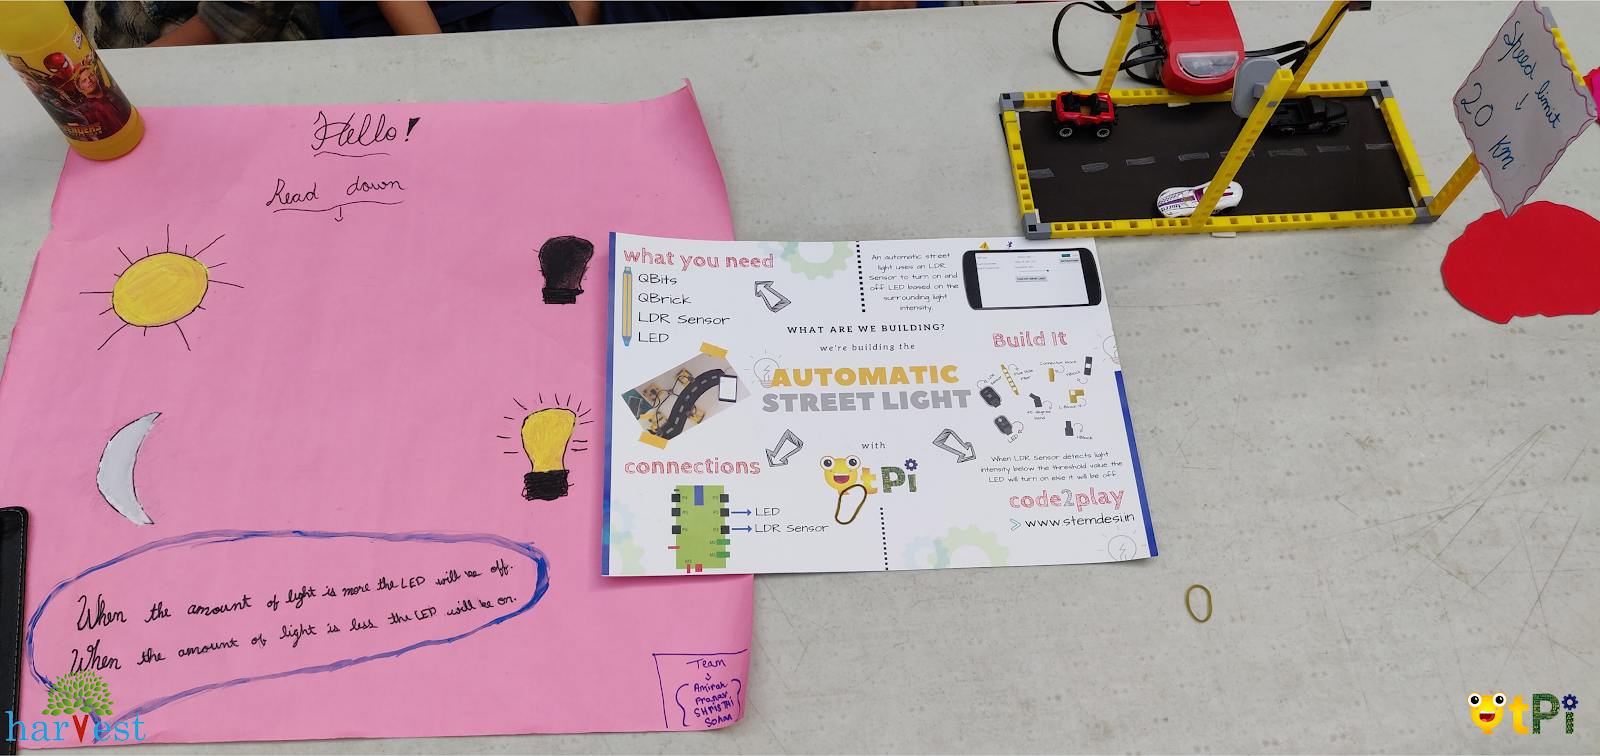 Hello!
Read down
When the amount of light is more the LED will be off.
When the amount of light is less the LED will be on.
Team
Pranav
SHRISTHI
Sohan
harvest
what you need
QBits
QBrick
LDR Sensor
LED
An automatic street
light uses an LDR
Sensor to turn on and
off LED based on the
surrounding light
intensity.
WHAT ARE WE BUILDING?
we're building the
AUTOMATIC
STREET LIGHT
with
UtPi
connections
LED
LDR Sensor
Build It
Connector block
LDR Sensor
L-Block
LED
When LDR Sensor detects light
intensity below the threshold value the
LED will turn on else it will be off.
code2play
> www.stemdesi.in
Speed limit
20 Km
UtPi